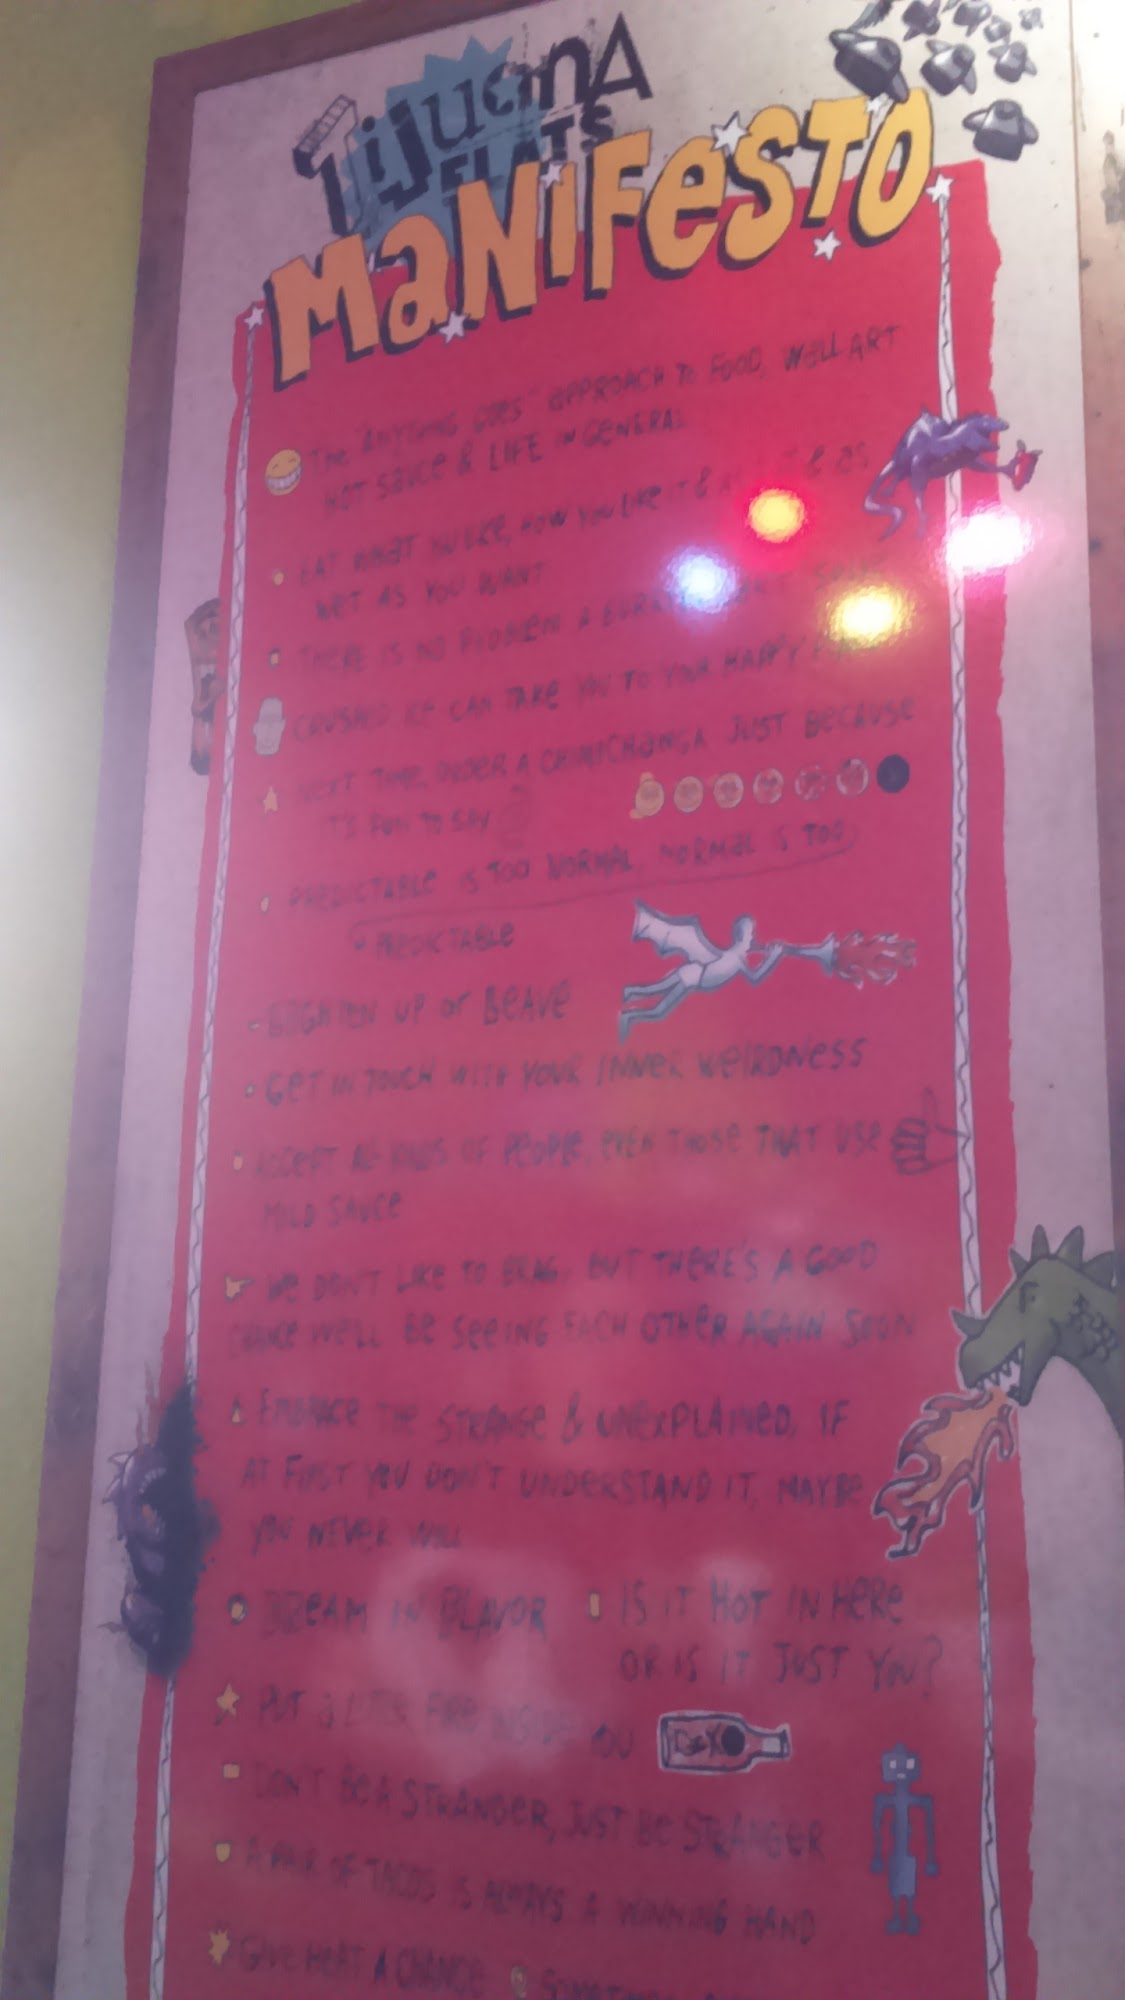 Tijuana
FLATS
MaNiFeSTO
THE "ANYTHING GOES" APPROACH TO FOOD, WALL ART
HOT SAUCE & LIFE IN GENERAL
EAT WHAT YOU LIKE, HOW YOU LIKE IT & AS
WET AS YOU WANT
THERE IS NO PROBLEM A
CRUSHED ICE CAN TAKE YOU TO YOUR HAPPY
NEXT TIME, ORDER A CHIMICHANGA JUST BECAUSE
IT'S FUN TO SAY
PREDICTABLE IS TOO NORMAL, NORMAL IS TOO
PREDICTABLE
UP or BEAVE
GET IN TOUCH WITH YOUR INNER WEIRDNESS
ACCEPT ALL KINDS OF PEOPLE, EVEN THOSE THAT USE
MILD SAUCE
WE DON'T LIKE TO BRAG, BUT THERE'S A GOOD
CHANCE WE'LL BE SEEING EACH OTHER AGAIN SOON
EMBRACE THE STRANGE & UNEXPLAINED, IF
AT FIRST YOU DON'T UNDERSTAND IT, MAYBE
YOU NEVER WILL
DREAM IN FLAVOR
IS IT HOT IN HERE
OR IS IT JUST YOU?
PUT A LITTLE FIRE INSIDE YOU
DON'T BE A STRANGER, JUST BE STRANGER
A PAIR OF TACOS IS ALWAYS A WINNING HAND
GIVE HEAT A CHANCE